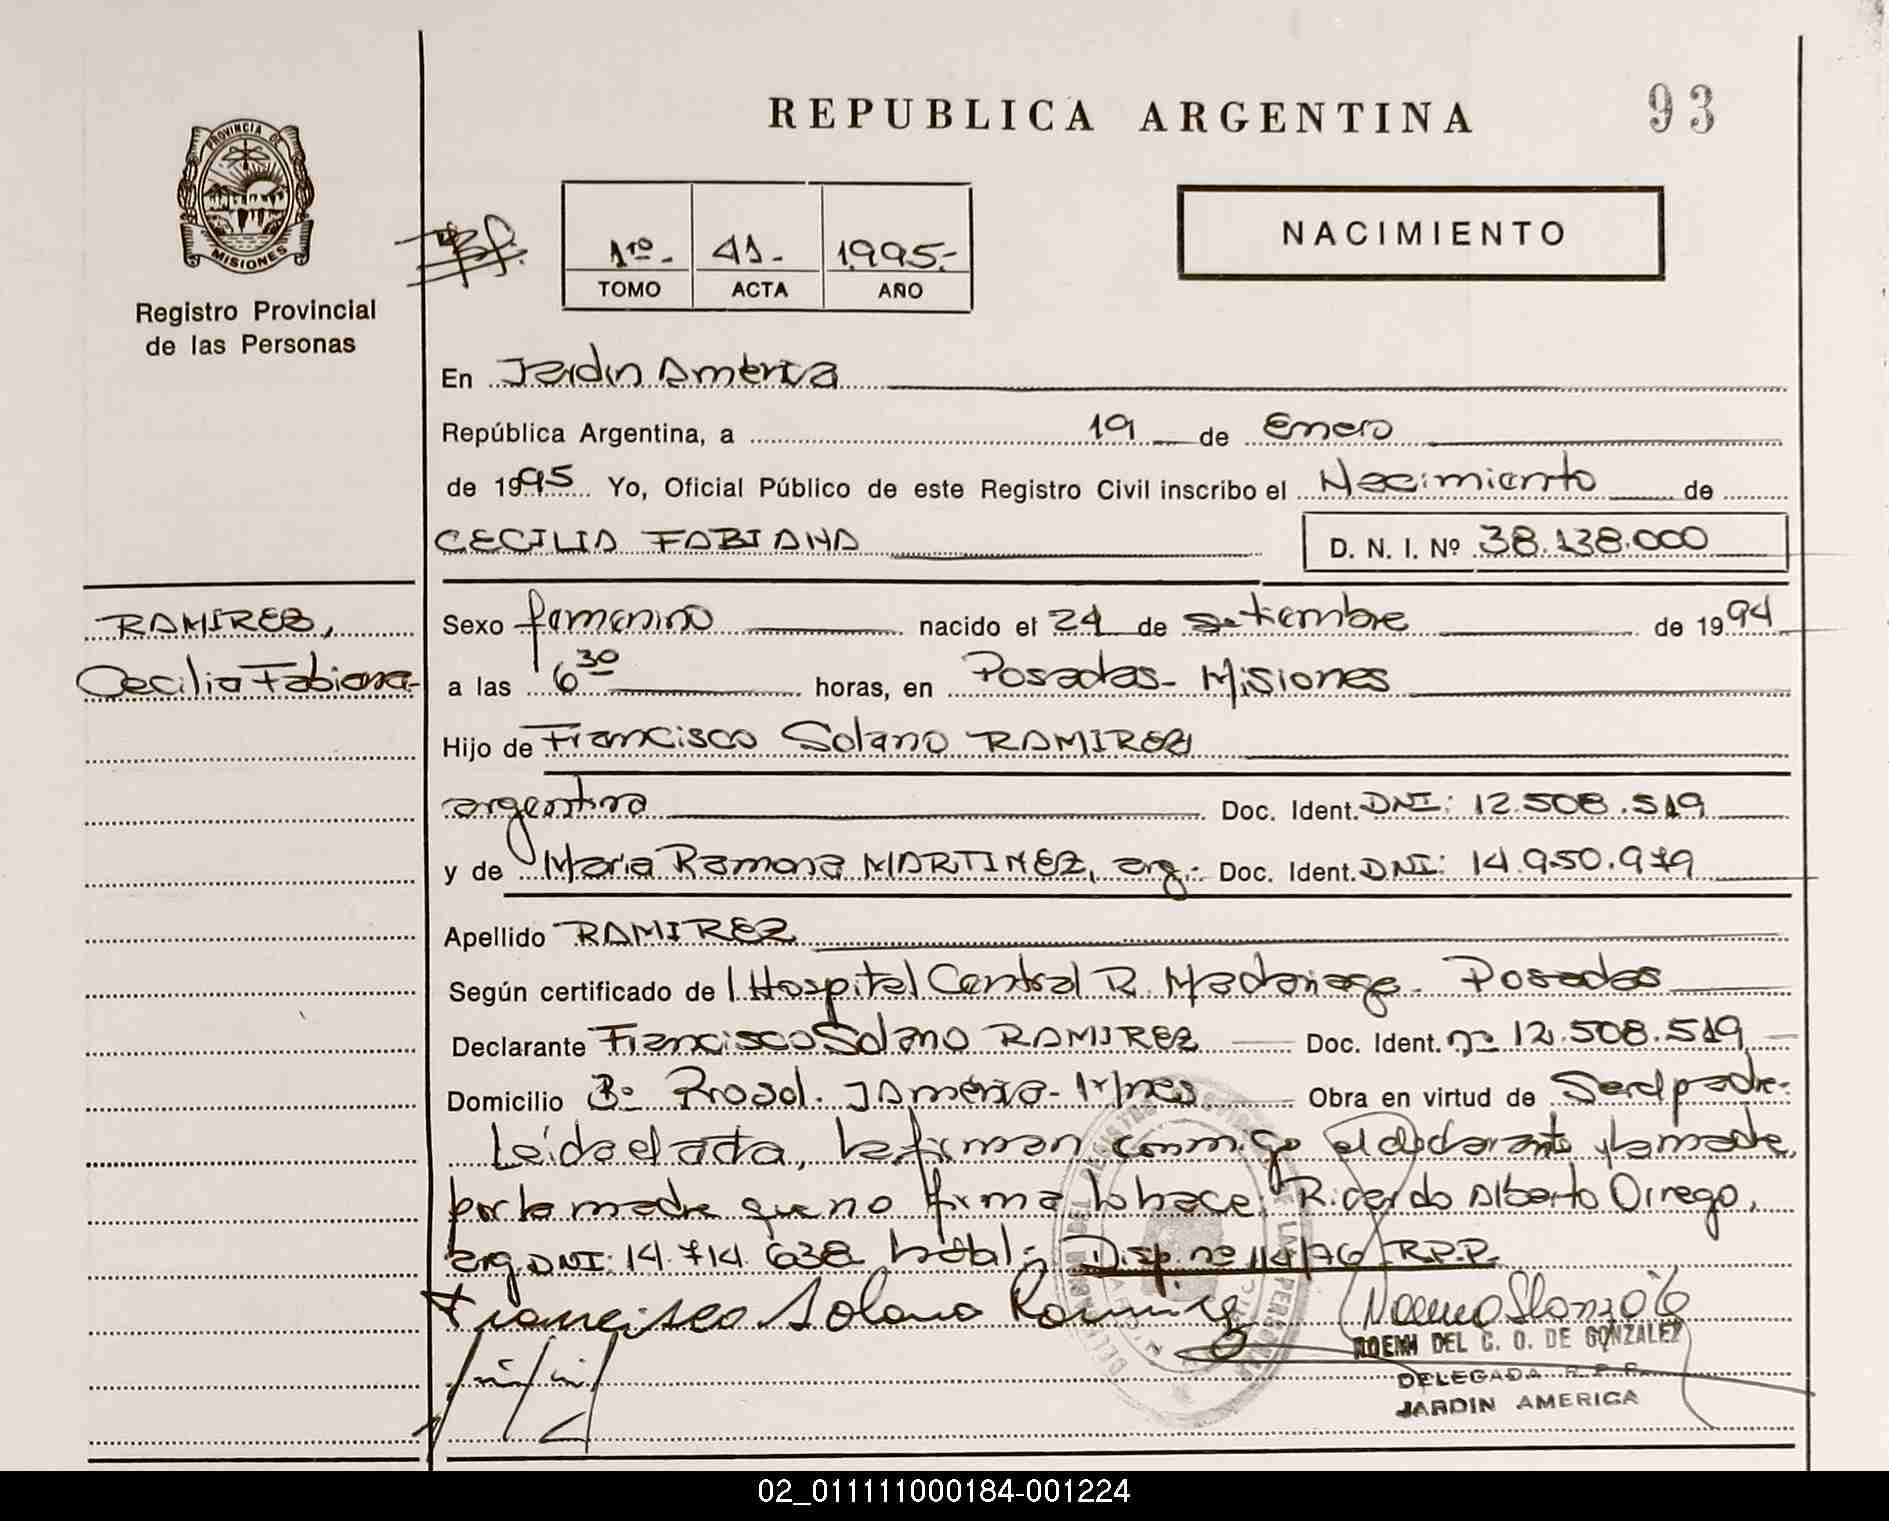 REPUBLICA ARGENTINA
93
PROVINCIA DE
MISIONES
Registro Provincial
de las Personas
1ro.- 41.- 1995.-
TOMO ACTA AÑO
NACIMIENTO
En Jardin America
República Argentina, a 19 de Enero
de 1995 Yo, Oficial Público de este Registro Civil inscribo el Nacimiento de
CECILIA FABIANA D. N. I. Nº 38.138.000
RAMIREZ,
Cecilia Fabiana-
Sexo femenino nacido el 24 de setiembre de 1994
a las 6 30 horas, en Posadas- Misiones
Hijo de Francisco Solano RAMIREZ
argentino Doc. Ident. DNI: 12.508.519
y de Maria Ramona MARTINEZ, arg.- Doc. Ident. DNI: 14.950.979
Apellido RAMIREZ
Según certificado de l Hospital Central R. Madariaga- Posadas
Declarante Francisco Solano RAMIREZ Doc. Ident. nº 12.508.519
Domicilio Bº J America- Mnes Obra en virtud de Ser el padre-
Leída el acta, la firman conmigo el declarante y la madre,
por la madre que no firma lo hace: Ricardo Alberto Orrego,
arg. DNI: 14.714.638 habl.- Disp. nº 114/76 R.P.P.
Francisco Solano Ramirez
NOEMI DEL C. O. DE GONZALEZ
DELEGADA R. P. P.
JARDIN AMERICA
02_011111000184-001224